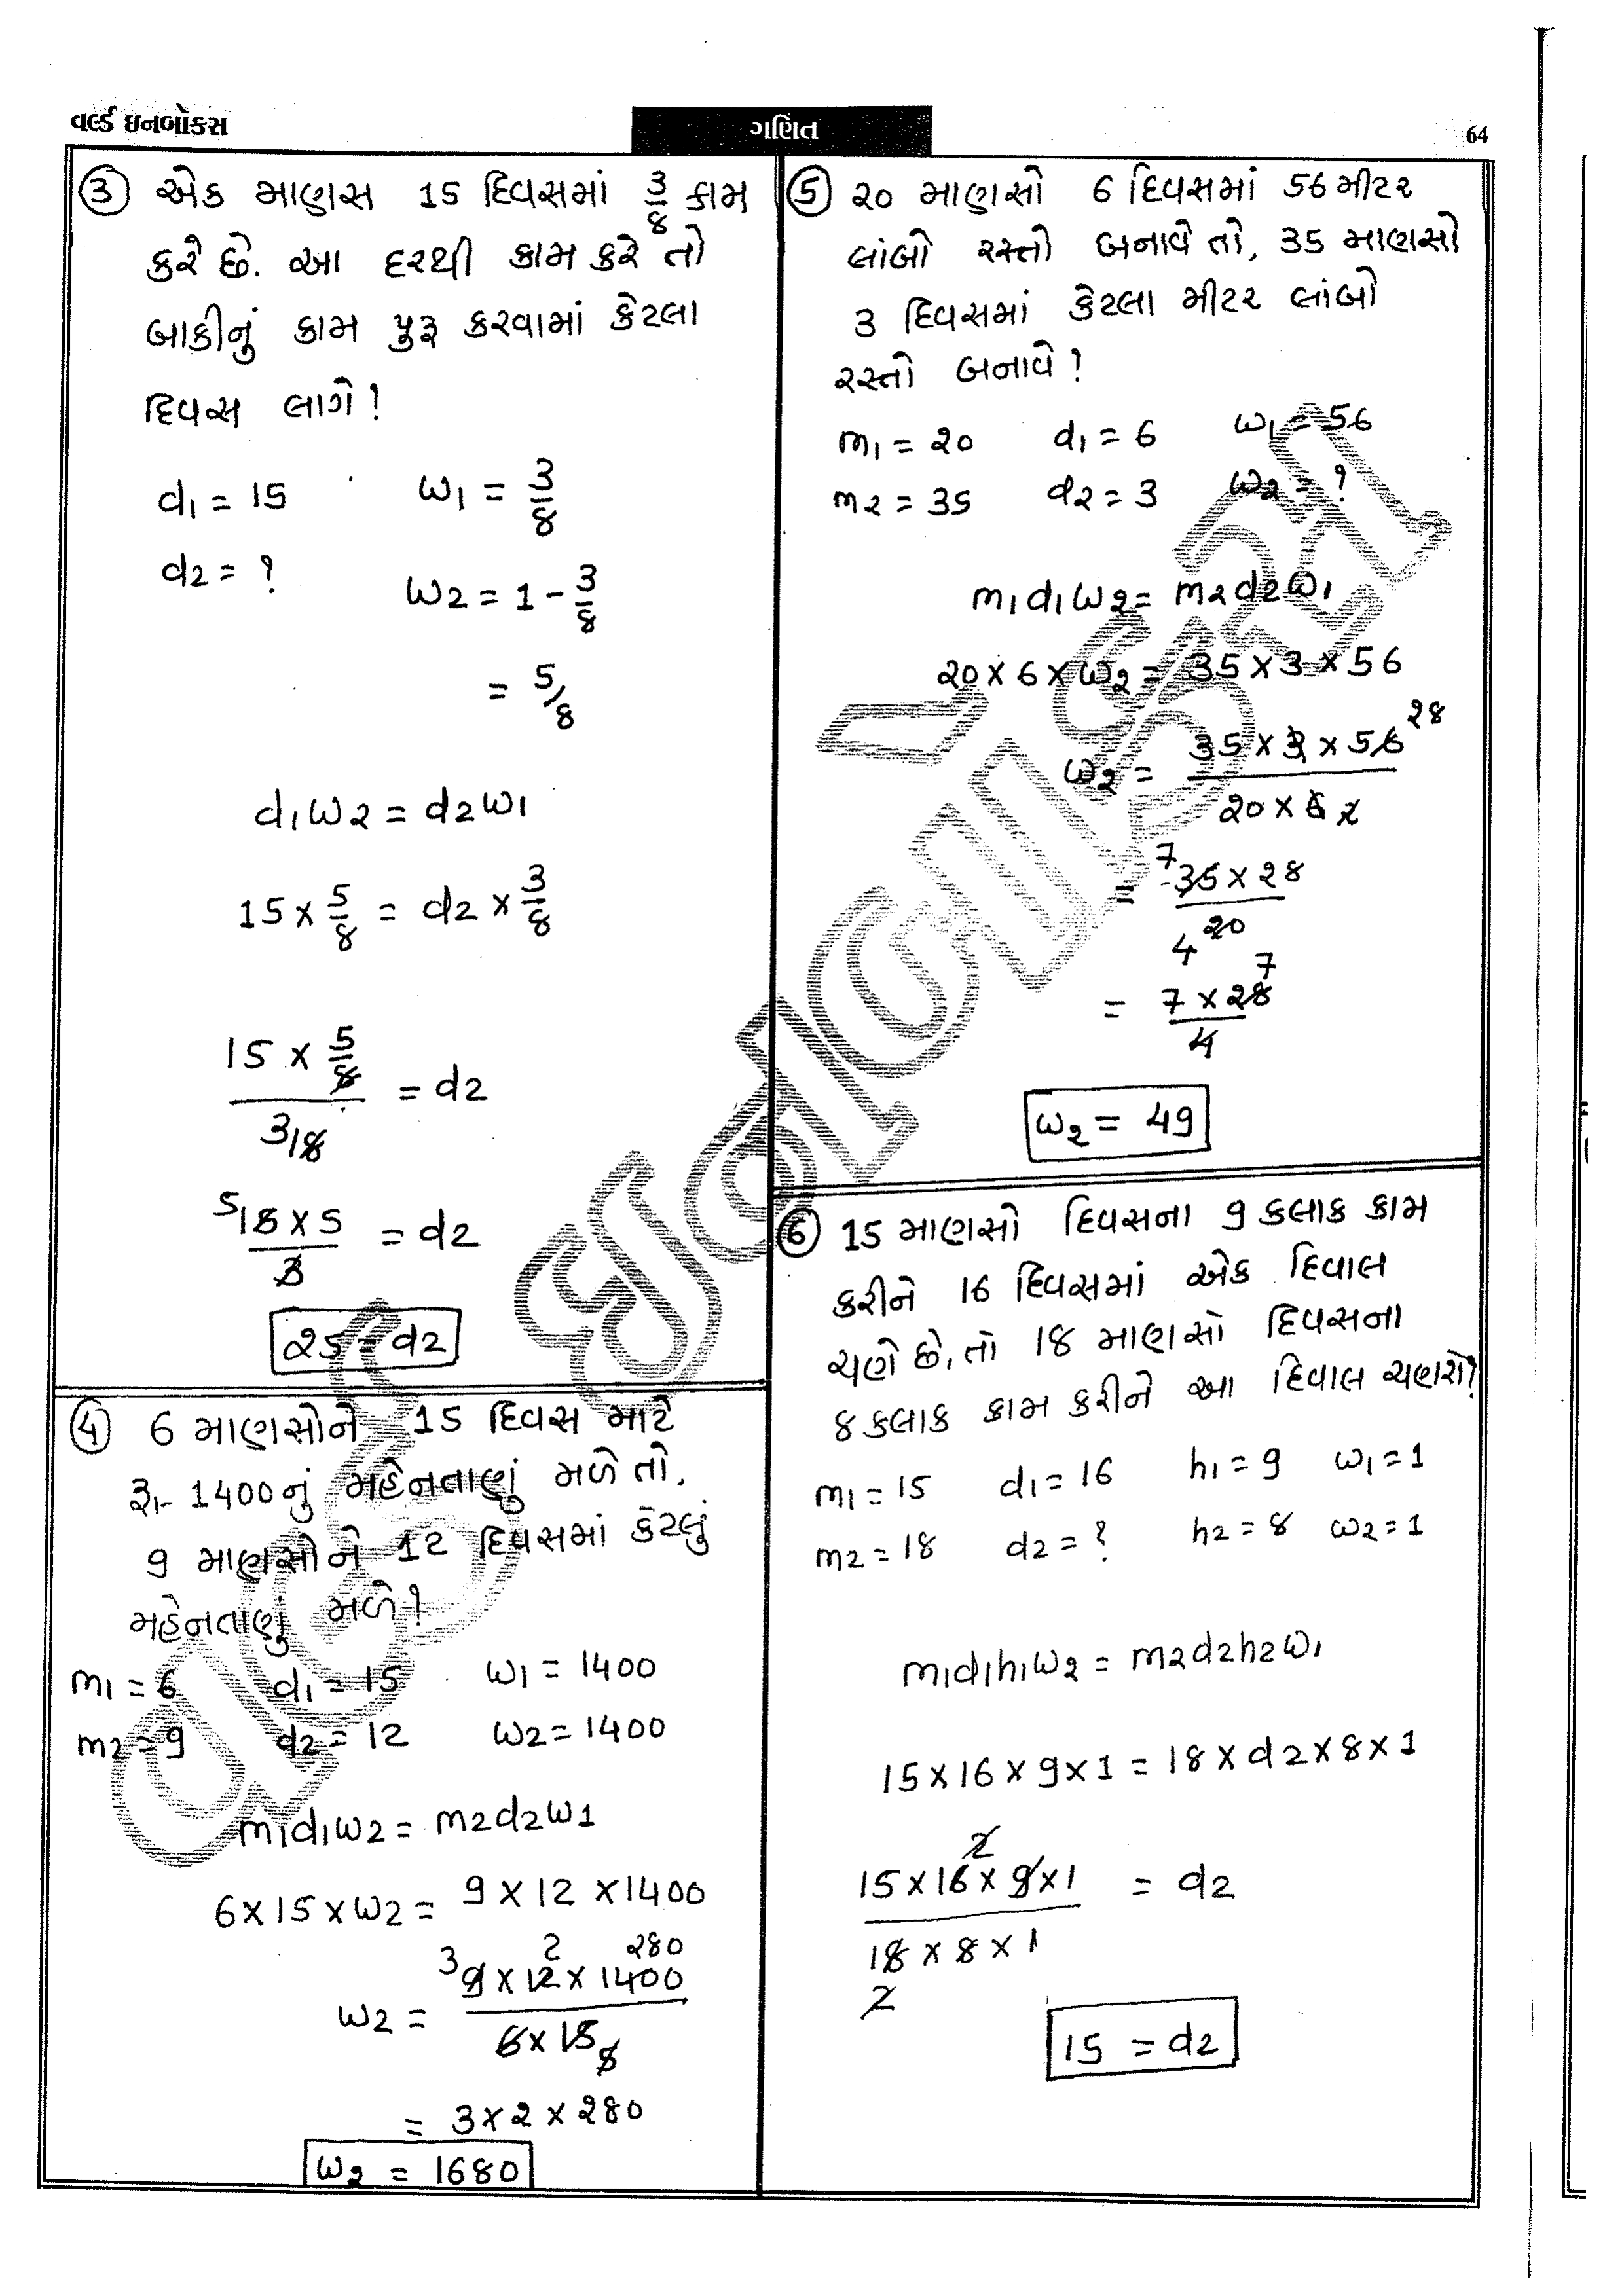 વર્લ્ડ ઇનબોક્સ
ગણિત
64
③ એક માણસ 15 દિવસમાં 3/8 કામ
કરે છે. આ દરથી કામ કરે તો
બાકીનું કામ પુરૂ કરવામાં કેટલા
દિવસ લાગે?
d1 = 15 w1 = 3/8
d2 = ? w2 = 1 - 3/8
= 5/8
d1w2 = d2w1
15 × 5/8 = d2 × 3/8
15 × 5/8 / 3/8 = d2
5 15 × 5 / 3 = d2
25 = d2
④ 6 માણસોને 15 દિવસ માટે
રૂા- 1400નું મહેનતાણું મળે તો,
9 માણસોને 12 દિવસમાં કેટલું
મહેનતાણું મળે?
m1 = 6 d1 = 15 w1 = 1400
m2 = 9 d2 = 12 w2 = 1400
m1d1w2 = m2d2w1
6×15×w2 = 9×12×1400
3 2 280
w2 = 9×12×1400 / 6×15 5
= 3×2×280
w2 = 1680
⑤ 20 માણસો 6 દિવસમાં 56 મીટર
લાંબો રસ્તો બનાવે તો, 35 માણસો
3 દિવસમાં કેટલા મીટર લાંબો
રસ્તો બનાવે?
m1 = 20 d1 = 6 w1 = 56
m2 = 35 d2 = 3 w2 = ?
m1d1w2 = m2d2w1
20×6×w2 = 35×3×56
w2 = 35×3×56 28 / 20×6 2
= 7 35×28 / 4 20
= 7×28 7 / 4
w2 = 49
⑥ 15 માણસો દિવસના 9 કલાક કામ
કરીને 16 દિવસમાં એક દિવાલ
ચણે છે, તો 18 માણસો દિવસના
8 કલાક કામ કરીને આ દિવાલ ચણશે?
m1 = 15 d1 = 16 h1 = 9 w1 = 1
m2 = 18 d2 = ? h2 = 8 w2 = 1
m1d1h1w2 = m2d2h2w1
15×16×9×1 = 18×d2×8×1
2
15×16×9×1 / 18×8×1 = d2
2
15 = d2